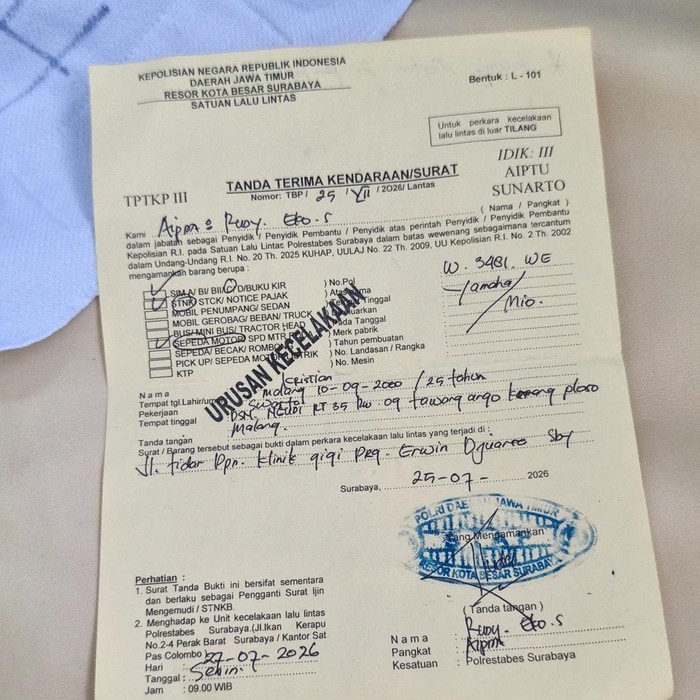 KEPOLISIAN NEGARA REPUBLIK INDONESIA
DAERAH JAWA TIMUR
RESOR KOTA BESAR SURABAYA
SATUAN LALU LINTAS
Bentuk : L - 101
Untuk perkara kecelakaan
lalu lintas di luar TILANG
IDIK: III
AIPTU
SUNARTO
TPTKP III
TANDA TERIMA KENDARAAN/SURAT
Nomor: TBP/ 25 / VII / 2026/ Lantas
Kami Aipda Rudy. Eko. S ( Nama / Pangkat )
dalam jabatan sebagai Penyidik / Penyidik Pembantu / Penyidik atas perintah Penyidik / Penyidik Pembantu
Kepolisian R.I. pada Satuan Lalu Lintas Polrestabes Surabaya dalam batas wewenang sebagaimana tercantum
dalam Undang-Undang R.I. No. 20 Th. 2025 KUHAP, UULAJ No. 22 Th. 2009, UU Kepolisian R.I. No. 2 Th. 2002
mengamankan barang berupa :
SIM A/ BI/ BII/ C/ D/BUKU KIR ) No.Pol W. 3481. WE
STNK STCK/ NOTICE PAJAK
MOBIL PENUMPANG/ SEDAN Yamaha
MOBIL GEROBAG/ BEBAN/ TRUCK
BUS/ MINI BUS/ TRACTOR HEAD Mio.
SEPEDA MOTOR/ SPD MTR ) Merk pabrik
SEPEDA/ BECAK/ ROMBONG ) Tahun pembuatan
PICK UP/ SEPEDA MOTOR LISTRIK ) No. Landasan / Rangka
KTP ) No. Mesin
URUSAN KECELAKAAN
Nama Kristian
Tempat tgl.Lahir/umur Malang 10-09-2000 / 25 tahun
Pekerjaan Swasta
Tempat tinggal DSN. RT 35 RW 09 tawang argo karang ploso
Malang.
Tanda tangan
Surat / Barang tersebut sebagai bukti dalam perkara kecelakaan lalu lintas yang terjadi di :
Jl. tidar Dpn. klinik gigi Drg. Erwin Djuarto Sby
Surabaya, 25-07- 2026
POLRI DAERAH JAWA TIMUR
Yang Mengamankan
RESOR KOTA BESAR SURABAYA
( Tanda tangan )
Nama : Rudy. Eko. S
Pangkat : Aipda
Kesatuan : Polrestabes Surabaya
Perhatian :
1. Surat Tanda Bukti ini bersifat sementara
dan berlaku sebagai Pengganti Surat Ijin
Mengemudi / STNKB.
2. Menghadap ke Unit kecelakaan lalu lintas
Polrestabes Surabaya.(Jl.Ikan Kerapu
No.2-4 Perak Barat Surabaya / Kantor Sat
Pas Colombo)
Hari : 27-07-2026
Tanggal : Senin.
Jam : 09.00 WIB